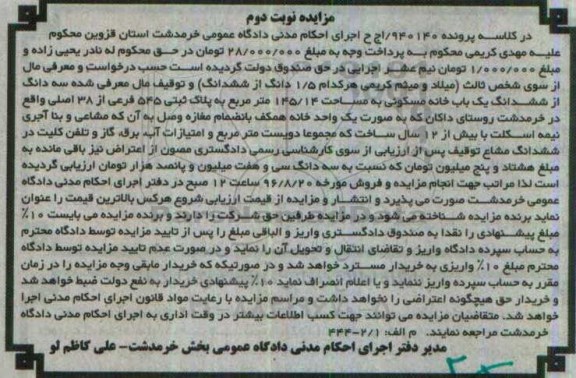 مزایده نوبت دوم
در کلاسه پرونده ۹۴۰۱۴۰/اج ح اجرای احکام مدنی دادگاه عمومی خرمدشت استان قزوین محکوم
علیه مهدی کریمی محکوم به پرداخت وجه به مبلغ ۲۸/۰۰۰/۰۰۰ تومان در حق محکوم له نادر یحیی زاده و
مبلغ ۱/۰۰۰/۰۰۰ تومان نیم عشر اجرایی در حق صندوق دولت گردیده است حسب درخواست و معرفی مال
از سوی شخص ثالث (میلاد و میثم کریمی هرکدام ۱/۵ دانگ از ششدانگ) و توقیف مال معرفی شده سه دانگ
از ششدانگ یک باب خانه مسکونی به مساحت ۱۴۵/۱۴ متر مربع به پلاک ثبتی ۵۴۵ فرعی از ۳۸ اصلی واقع
در خرمدشت روستای داکان که به صورت یک واحد خانه همکف بانضمام مغازه وصل به آن که مشاعی و بنا آجری
نیمه اسکلت با بیش از ۲۰ سال ساخت که مجموعا دویست متر مربع و امتیازات آب، برق، گاز و تلفن کلیت در
ششدانگ مشاع توقیف پس از ارزیابی از سوی کارشناسی رسمی دادگستری مصون از اعتراض نیز باقی مانده به
مبلغ هشتاد و پنج میلیون تومان که نسبت به سه دانگ سی و هفت میلیون و پانصد هزار تومان ارزیابی گردیده
است لذا مراتب جهت انجام مزایده و فروش مورخه ۹۶/۸/۲۰ ساعت ۱۲ صبح در دفتر اجرای احکام مدنی دادگاه
عمومی خرمدشت صورت می پذیرد و انتشار و مزایده از قیمت ارزیابی شروع هرکس بالاترین قیمت را عنوان
نماید برنده مزایده شناخته می شود و در مزایده طرفین حق شرکت را دارند و برنده مزایده می بایست ۱۰٪
مبلغ پیشنهادی را نقدا به صندوق دادگستری واریز و الباقی مبلغ را پس از تایید مزایده توسط دادگاه محترم
به حساب سپرده دادگاه واریز و تقاضای انتقال و تحویل آن را نماید و در صورت عدم تایید مزایده توسط دادگاه
محترم مبلغ ۱۰٪ واریزی به خریدار مسترد خواهد شد و در صورتیکه که خریدار مابقی وجه مزایده را در زمان
مقرر به حساب سپرده واریز ننماید و یا اعلام انصراف نماید ۱۰٪ پیشنهادی خریدار به نفع دولت ضبط خواهد شد
و خریدار حق هیچگونه اعتراضی را نخواهد داشت و مراسم مزایده با رعایت مواد قانون اجرای احکام مدنی اجرا
خواهد شد. متقاضیان مزایده می توانند جهت کسب اطلاعات بیشتر در وقت اداری به اجرای احکام مدنی دادگاه
خرمدشت مراجعه نمایند. م الف: ۴۴۴-۲/۱
مدیر دفتر اجرای احکام مدنی دادگاه عمومی بخش خرمدشت- علی کاظم لو